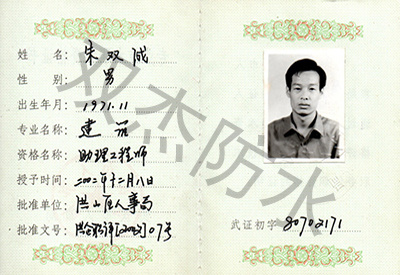 姓名：朱双成
性别：男
出生年月：1971.11
专业名称：建筑
资格名称：助理工程师
授予时间：二〇〇二年十二月八日
批准单位：洪山区人事局
批准文号：[2002]07号
武证初字 80702171
双杰防水